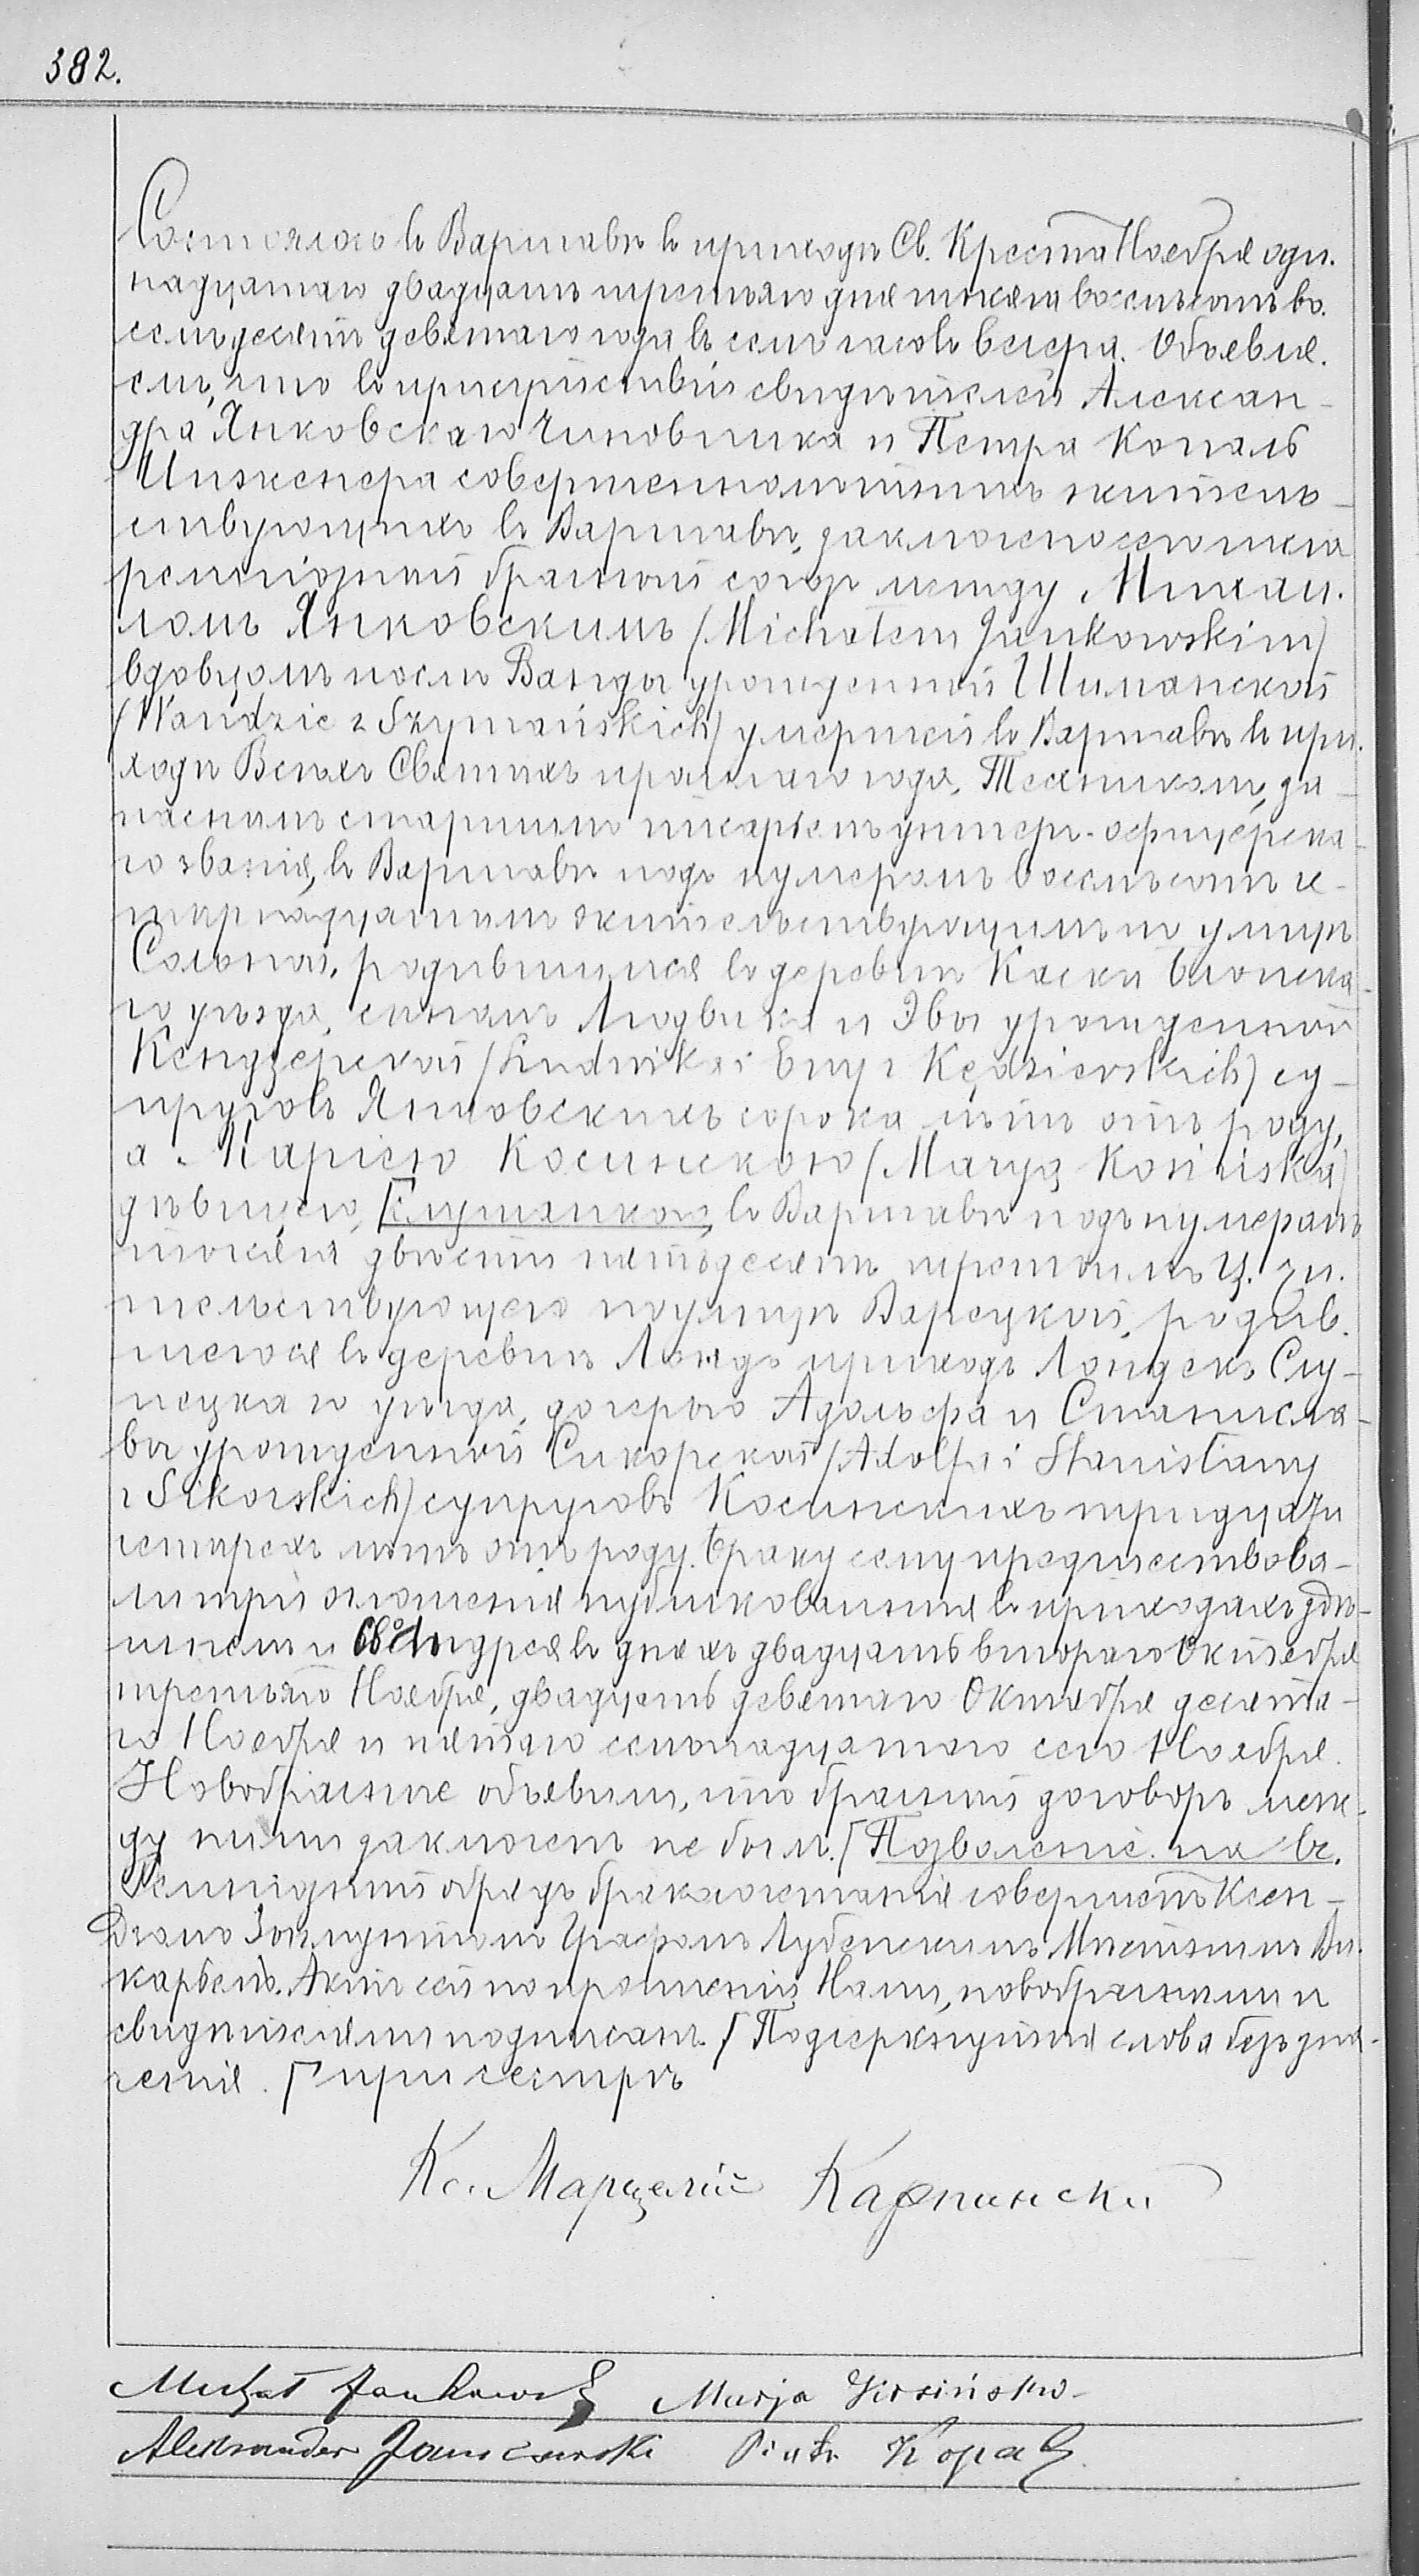 382.
Состоялось въ Варшавѣ въ приходѣ Св. Креста Ноября оди-
надцатаго двадцать третьяго дня тысяча восемьсотъ во-
семьдесятъ девятаго года въ семь часовъ вечера. Объявля-
емъ, что въ присутствіи свидѣтелей Алексан-
дра Янковскаго Чиновника и Петра Копаль
Инженера совершеннолѣтнихъ житель-
ствующихъ въ Варшавѣ, заключенъ сего числа
религіозный брачный союзъ между Михаи-
ломъ Янковскимъ (Michałem Jankowskim)
вдовцомъ послѣ Ванды урожденной Шиманской
(Wandzie z Szymańskich) умершей въ Варшавѣ въ при-
ходѣ Всѣхъ Святыхъ прошлаго года, Техникомъ, за-
паснымъ старшимъ писаремъ унтеръ-офицерска-
го званія, въ Варшавѣ подъ нумеромъ восемьсотъ че-
тырнадцатымъ жительствующимъ по улицѣ
Сольной, родившимся въ деревнѣ Каски Блонска-
го уѣзда, сыномъ Людвика и Эвы урожденной
Кендзерской (Ludwika i Ewy z Kędzierskich) су-
пруговъ Янковскихъ сорока лѣтъ отъ роду,
а Маріею Косинскою (Maryą Kosińską)
дѣвицею, [служанкою, въ Варшавѣ подъ нумеромъ
тысяча двѣсти пятьдесятъ третьимъ Ц. жи-
тельствующею по улицѣ Варецкой, родив-
шеюся въ деревнѣ Лондъ приходъ Лондекъ Слу-
пецкаго уѣзда, дочерью Адольфа и Станисла-
вы урожденной Сикорской (Adolfa i Stanisławy
z Sikorskich) супруговъ Косинскихъ тридцати
четырехъ лѣтъ отъ роду. Браку сему предшествова-
ли три оглашенія публикованныя въ приходахъ здѣ-
шнемъ и Св. Андрея въ дняхъ двадцать втораго Октября
третьяго Ноября, двадцать девятаго Октября десята-
го Ноября и пятаго семнадцатаго сего Ноября.
Новобрачные объявили, что брачный договоръ меж-
ду ними заключенъ не былъ. [Позволеніе на вс.
Религіозный обрядъ бракосочетанія совершенъ Ксен-
дзомъ Графомъ Лубенскимъ Мѣстнымъ Ви-
каріемъ. Актъ сей по прочтеніи Нами, новобрачными и
свидѣтелями подписанъ. [Подчеркнутыя слова безъ зна-
ченія. [при сестрѣ
Кс. Марцелій Карпински
Michał Jankowski Marja Kosińska
Aleksander Jankowski Piotr Kopal